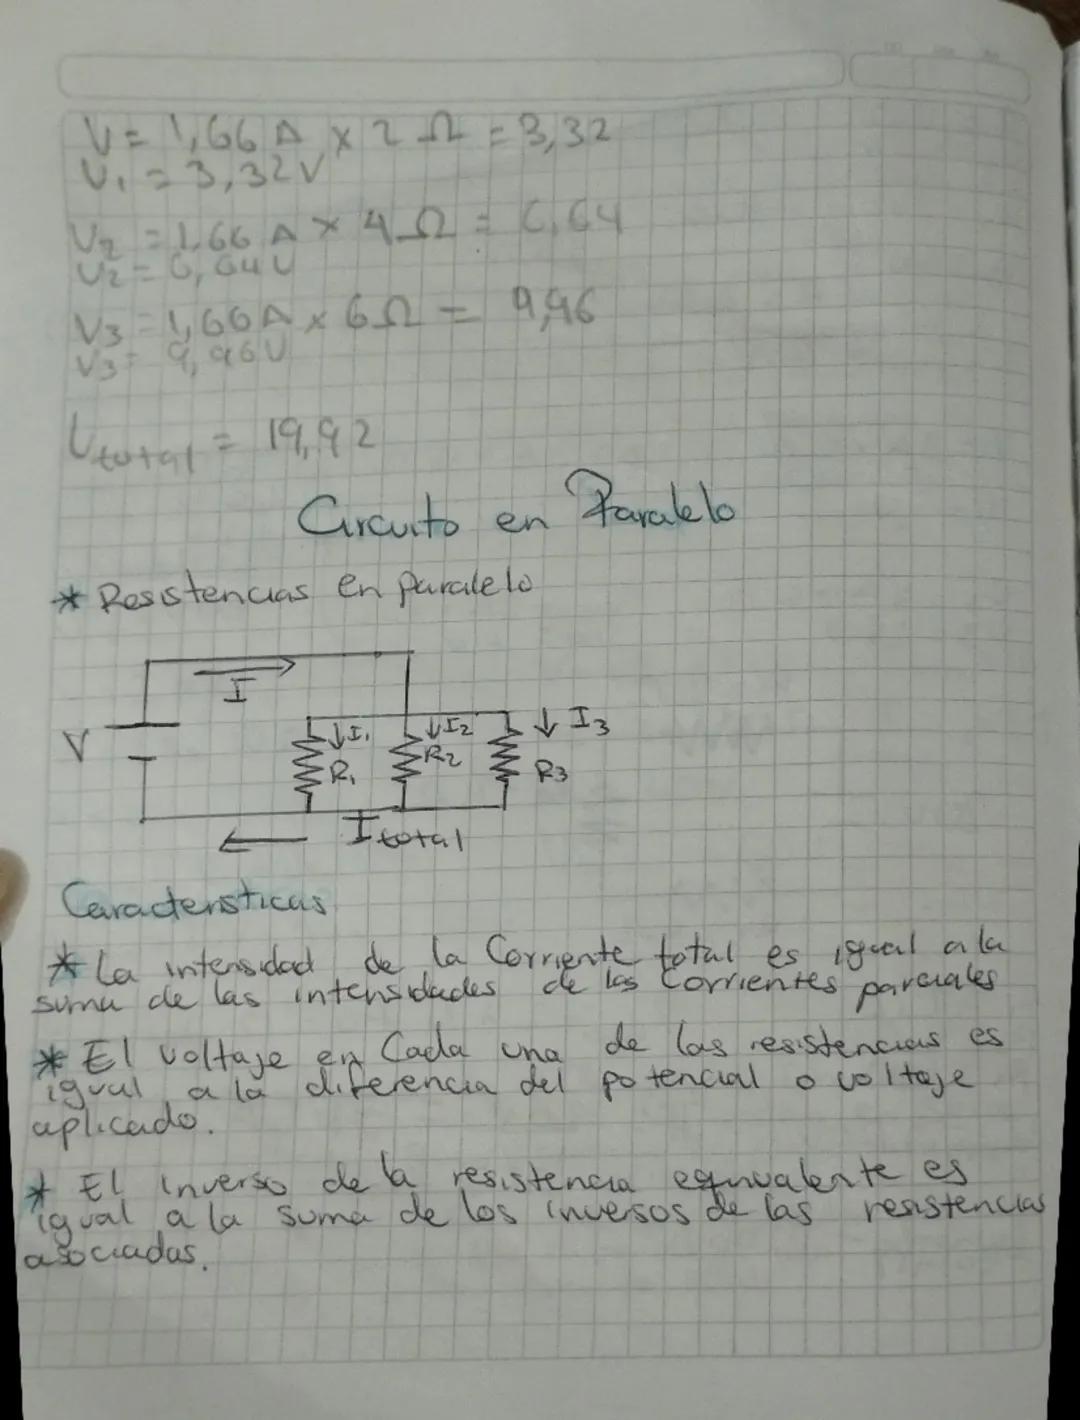 V = 1,66 A x 2 Ω = 3,32
V1 = 3,32V
V2 = 1,66 A x 4 Ω = 6,64
V2 = 6,64V
V3 = 1,66A x 6Ω = 9,96
V3 = 9,96V
Vtotal = 19,92
Circuito en Paralelo
* Resistencias en paralelo
I
V
I1 I2 I3
R1 R2 R3
I total
Caracteristicas
* La intensidad de la Corriente total es igual a la
suma de las intensidades de las Corrientes parciales
* El voltaje en Cada una de las resistencias es
igual a la diferencia del potencial o voltaje
aplicado.
* El inverso de la resistencia equivalente es
igual a la suma de los inversos de las resistencias
asociadas.